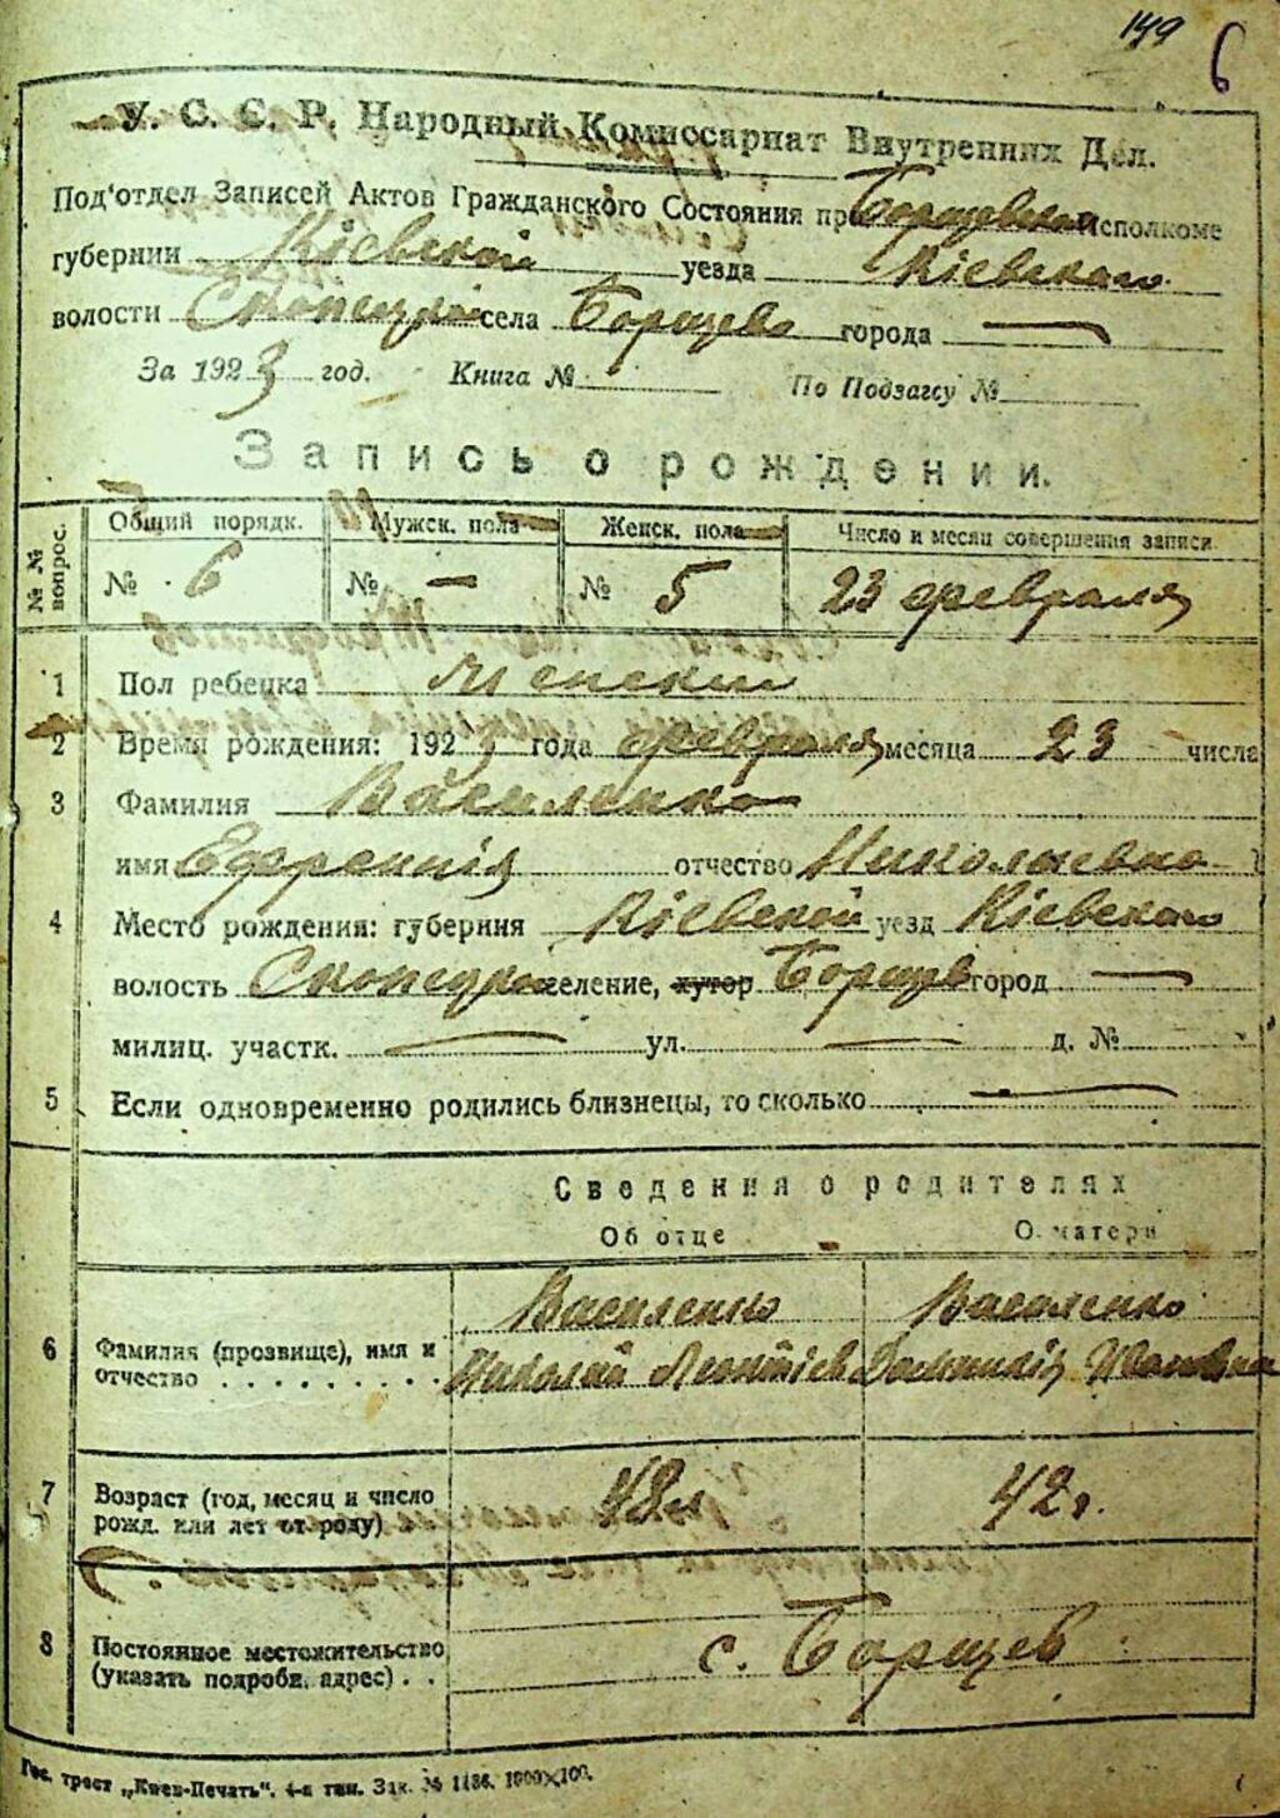 149 6
У. С. Є. Р. Народный Комиссариат Внутренних Дел.
Под‘отдел Записей Актов Гражданского Состояния при Борщевском Исполкоме
губернии Кіевской уезда Кіевскаго
волости села Борщево города —
За 1923 год. Книга № По Подзагсу №
Запись о рождении.
№ № вопрос. Общий порядк. Мужск. пола Женск. пола Число и месяц совершения записи
№ 6 № — № 5 23 февраля
1 Пол ребенка Женский
2 Время рождения: 1923 года февраля месяца 23 числа
3 Фамилия Василенко
имя отчество Николаевна
4 Место рождения: губерния Кіевской уезд Кіевскаго
волость селение, хутор Борщев город —
милиц. участк. — ул. — д. №
5 Если одновременно родились близнецы, то сколько —
Сведения о родителях
Об отце О матери
Василенко Василенко
6 Фамилия (прозвище), имя и
отчество . . . . . . . . . Николай Леонтіев Ивановна
7 Возраст (год, месяц и число
рожд. или лет от роду) 42 г.
8 Постоянное местожительство
(указать подробн. адрес) . . с. Борщев
Гос. трест „Киев-Печать“. 4-я тип. Зак. № 1186. 1000×100.